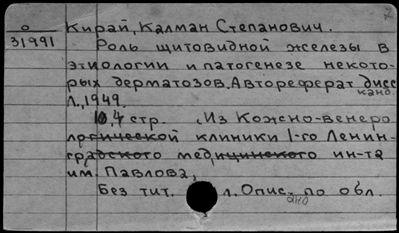 о Кирай, Калман Степанович.
31991 Роль щитовидной железы в
этиологии и патогенезе некото-
рых дерматозов. Автореферат дисс
канд.
Л., 1949.
10,4 стр. (Из Кожно-венеро
логической клиники 1-го Ленин-
градского медицинского ин-та
им. Павлова,
Без тит. л. Опис. по обл.